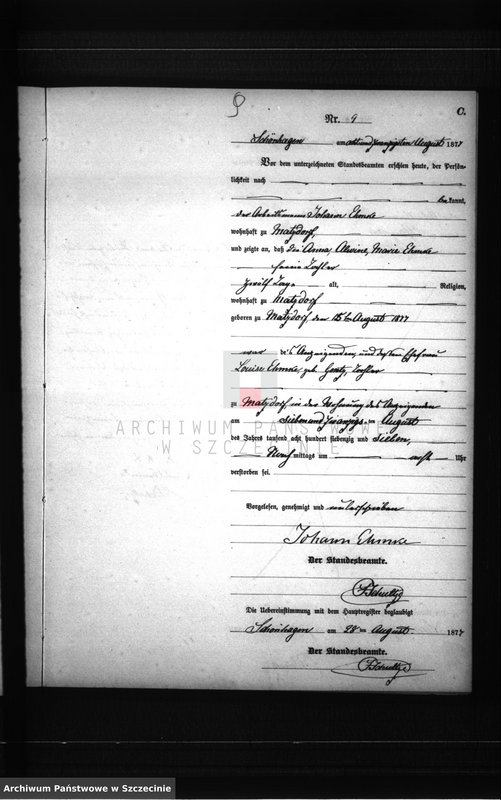 C.
Nr. 9
Schönhagen am acht und zwanzigsten August 1877
Vor dem unterzeichneten Standesbeamten erschien heute, der Persön-
lichkeit nach
bekannt,
der Arbeitsmann Johann Ehmke
wohnhaft zu Matzdorf,
und zeigte an, daß die Anna, Alwine, Marie Ehmke
seine Tochter
zwölf Tage alt, Religion,
wohnhaft zu Matzdorf
geboren zu Matzdorf den 15ten August 1877
des Anzeigenden und dessen Ehefrau
Louise Ehmke, geb. Gentz, Tochter
zu Matzdorf in der Wohnung des Anzeigenden
am sieben und zwanzigsten August
des Jahres tausend acht hundert siebenzig und sieben,
Nachmittags um Uhr
verstorben sei.
Vorgelesen, genehmigt und unterschrieben
Johann Ehmke
Der Standesbeamte.
Schultz
Die Uebereinstimmung mit dem Hauptregister beglaubigt
Schönhagen am 28ten August 1877
Der Standesbeamte.
Schultz
ARCHIWUM PAŃSTWOWE
W SZCZECINIE
Archiwum Państwowe w Szczecinie